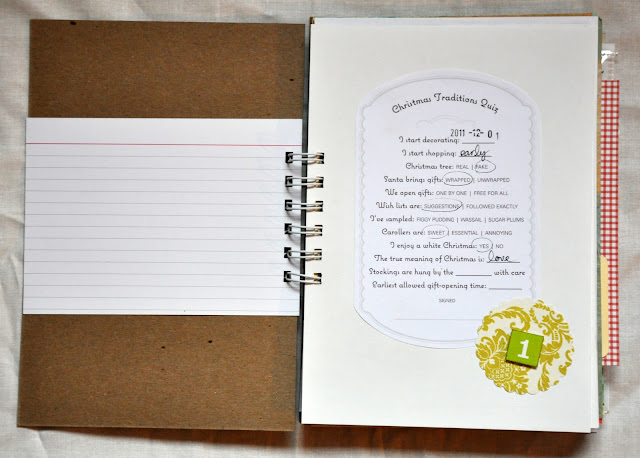 Christmas Traditions Quiz
2011-12-01
I start decorating:
I start shopping: early
Christmas tree: REAL | FAKE
Santa brings gifts: WRAPPED | UNWRAPPED
We open gifts: ONE BY ONE | FREE FOR ALL
Wish lists are: SUGGESTIONS | FOLLOWED EXACTLY
I've sampled: FIGGY PUDDING | WASSAIL | SUGAR PLUMS
Carollers are: SWEET | ESSENTIAL | ANNOYING
I enjoy a white Christmas: YES | NO
The true meaning of Christmas is: love
Stockings are hung by the ________ with care
Earliest allowed gift-opening time: ________
SIGNED
1